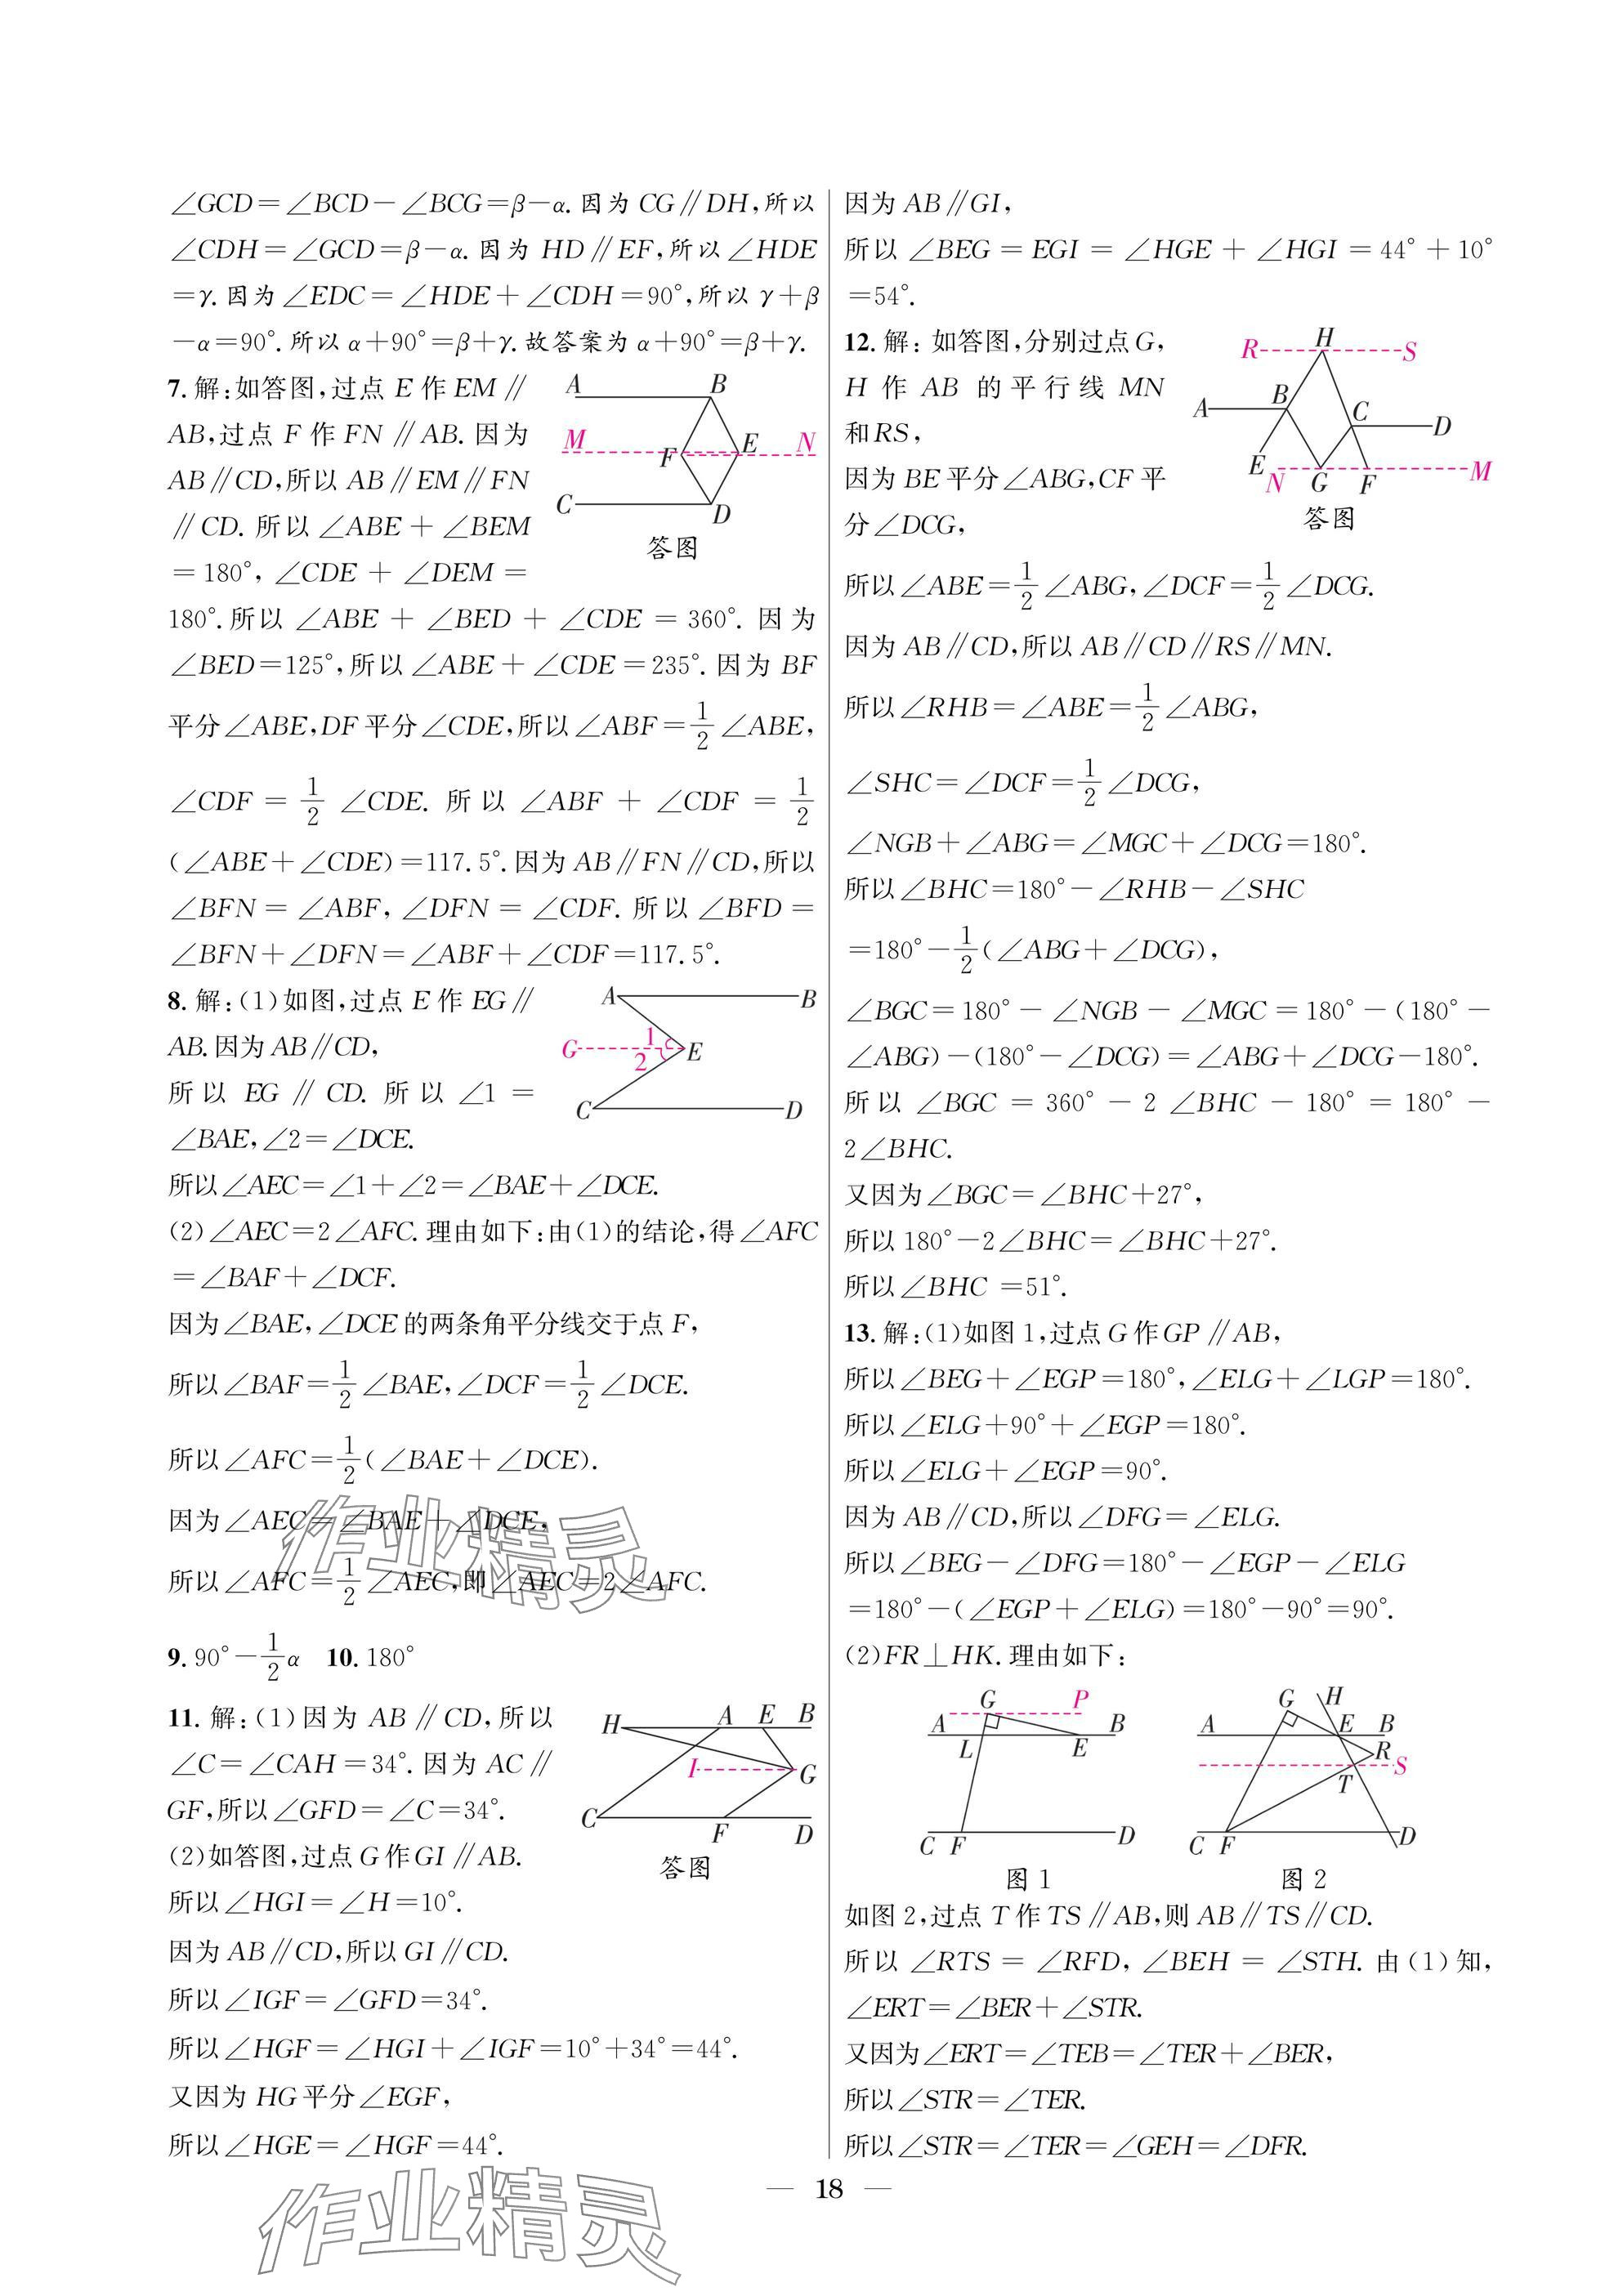 ∠GCD=∠BCD-∠BCG=β-α.因为CG∥DH,所以
∠CDH=∠GCD=β-α.因为 HD∥EF,所以∠HDE
=γ.因为∠EDC=∠HDE+∠CDH=90°,所以γ+β
-α=90°.所以α+90°=β+γ.故答案为α+90°=β+γ.
7.解:如答图,过点E作EM∥
AB,过点F作FN∥AB.因为
AB∥CD,所以AB∥EM∥FN
∥CD.所以∠ABE+∠BEM
=180°,∠CDE+∠DEM=
180°.所以∠ABE+∠BED+∠CDE=360°.因为
∠BED=125°,所以∠ABE+∠CDE=235°.因为BF
平分∠ABE,DF平分∠CDE,所以∠ABF=1/2∠ABE,
∠CDF=1/2∠CDE.所以∠ABF+∠CDF=1/2
(∠ABE+∠CDE)=117.5°.因为AB∥FN∥CD,所以
∠BFN=∠ABF,∠DFN=∠CDF.所以∠BFD=
∠BFN+∠DFN=∠ABF+∠CDF=117.5°.
A B M F E N C D
答图
8.解:(1)如图,过点E作EG∥
AB.因为AB∥CD,
所以EG∥CD.所以∠1=
∠BAE,∠2=∠DCE.
所以∠AEC=∠1+∠2=∠BAE+∠DCE.
(2)∠AEC=2∠AFC.理由如下:由(1)的结论,得∠AFC
=∠BAF+∠DCF.
因为∠BAE,∠DCE的两条角平分线交于点F,
所以∠BAF=1/2∠BAE,∠DCF=1/2∠DCE.
所以∠AFC=1/2(∠BAE+∠DCE).
因为∠AEC=∠BAE+∠DCE,
所以∠AFC=1/2∠AEC,即∠AEC=2∠AFC.
A B G 1 2 E C D
作业精灵
9.90°-1/2α 10.180°
11.解:(1)因为AB∥CD,所以
∠C=∠CAH=34°.因为AC∥
GF,所以∠GFD=∠C=34°.
(2)如答图,过点G作GI∥AB.
所以∠HGI=∠H=10°.
因为AB∥CD,所以GI∥CD.
所以∠IGF=∠GFD=34°.
所以∠HGF=∠HGI+∠IGF=10°+34°=44°.
又因为HG平分∠EGF,
所以∠HGE=∠HGF=44°.
H A E B I G C F D
答图
因为AB∥GI,
所以∠BEG=EGI=∠HGE+∠HGI=44°+10°
=54°.
12.解:如答图,分别过点G,
H作AB的平行线MN
和RS,
因为BE平分∠ABG,CF平
分∠DCG,
所以∠ABE=1/2∠ABG,∠DCF=1/2∠DCG.
因为AB∥CD,所以AB∥CD∥RS∥MN.
所以∠RHB=∠ABE=1/2∠ABG,
∠SHC=∠DCF=1/2∠DCG,
∠NGB+∠ABG=∠MGC+∠DCG=180°.
所以∠BHC=180°-∠RHB-∠SHC
=180°-1/2(∠ABG+∠DCG),
∠BGC=180°-∠NGB-∠MGC=180°-(180°-
∠ABG)-(180°-∠DCG)=∠ABG+∠DCG-180°.
所以∠BGC=360°-2∠BHC-180°=180°-
2∠BHC.
又因为∠BGC=∠BHC+27°,
所以180°-2∠BHC=∠BHC+27°.
所以∠BHC=51°.
R H S A B C D E N G F M
答图
13.解:(1)如图1,过点G作GP∥AB,
所以∠BEG+∠EGP=180°,∠ELG+∠LGP=180°.
所以∠ELG+90°+∠EGP=180°.
所以∠ELG+∠EGP=90°.
因为AB∥CD,所以∠DFG=∠ELG.
所以∠BEG-∠DFG=180°-∠EGP-∠ELG
=180°-(∠EGP+∠ELG)=180°-90°=90°.
(2)FR⊥HK.理由如下:
G P A B L E C F D
图1
G H A E B R S T C F D
图2
如图2,过点T作TS∥AB,则AB∥TS∥CD.
所以∠RTS=∠RFD,∠BEH=∠STH.由(1)知,
∠ERT=∠BER+∠STR.
又因为∠ERT=∠TEB=∠TER+∠BER,
所以∠STR=∠TER.
所以∠STR=∠TER=∠GEH=∠DFR.
— 18 —
作业精灵